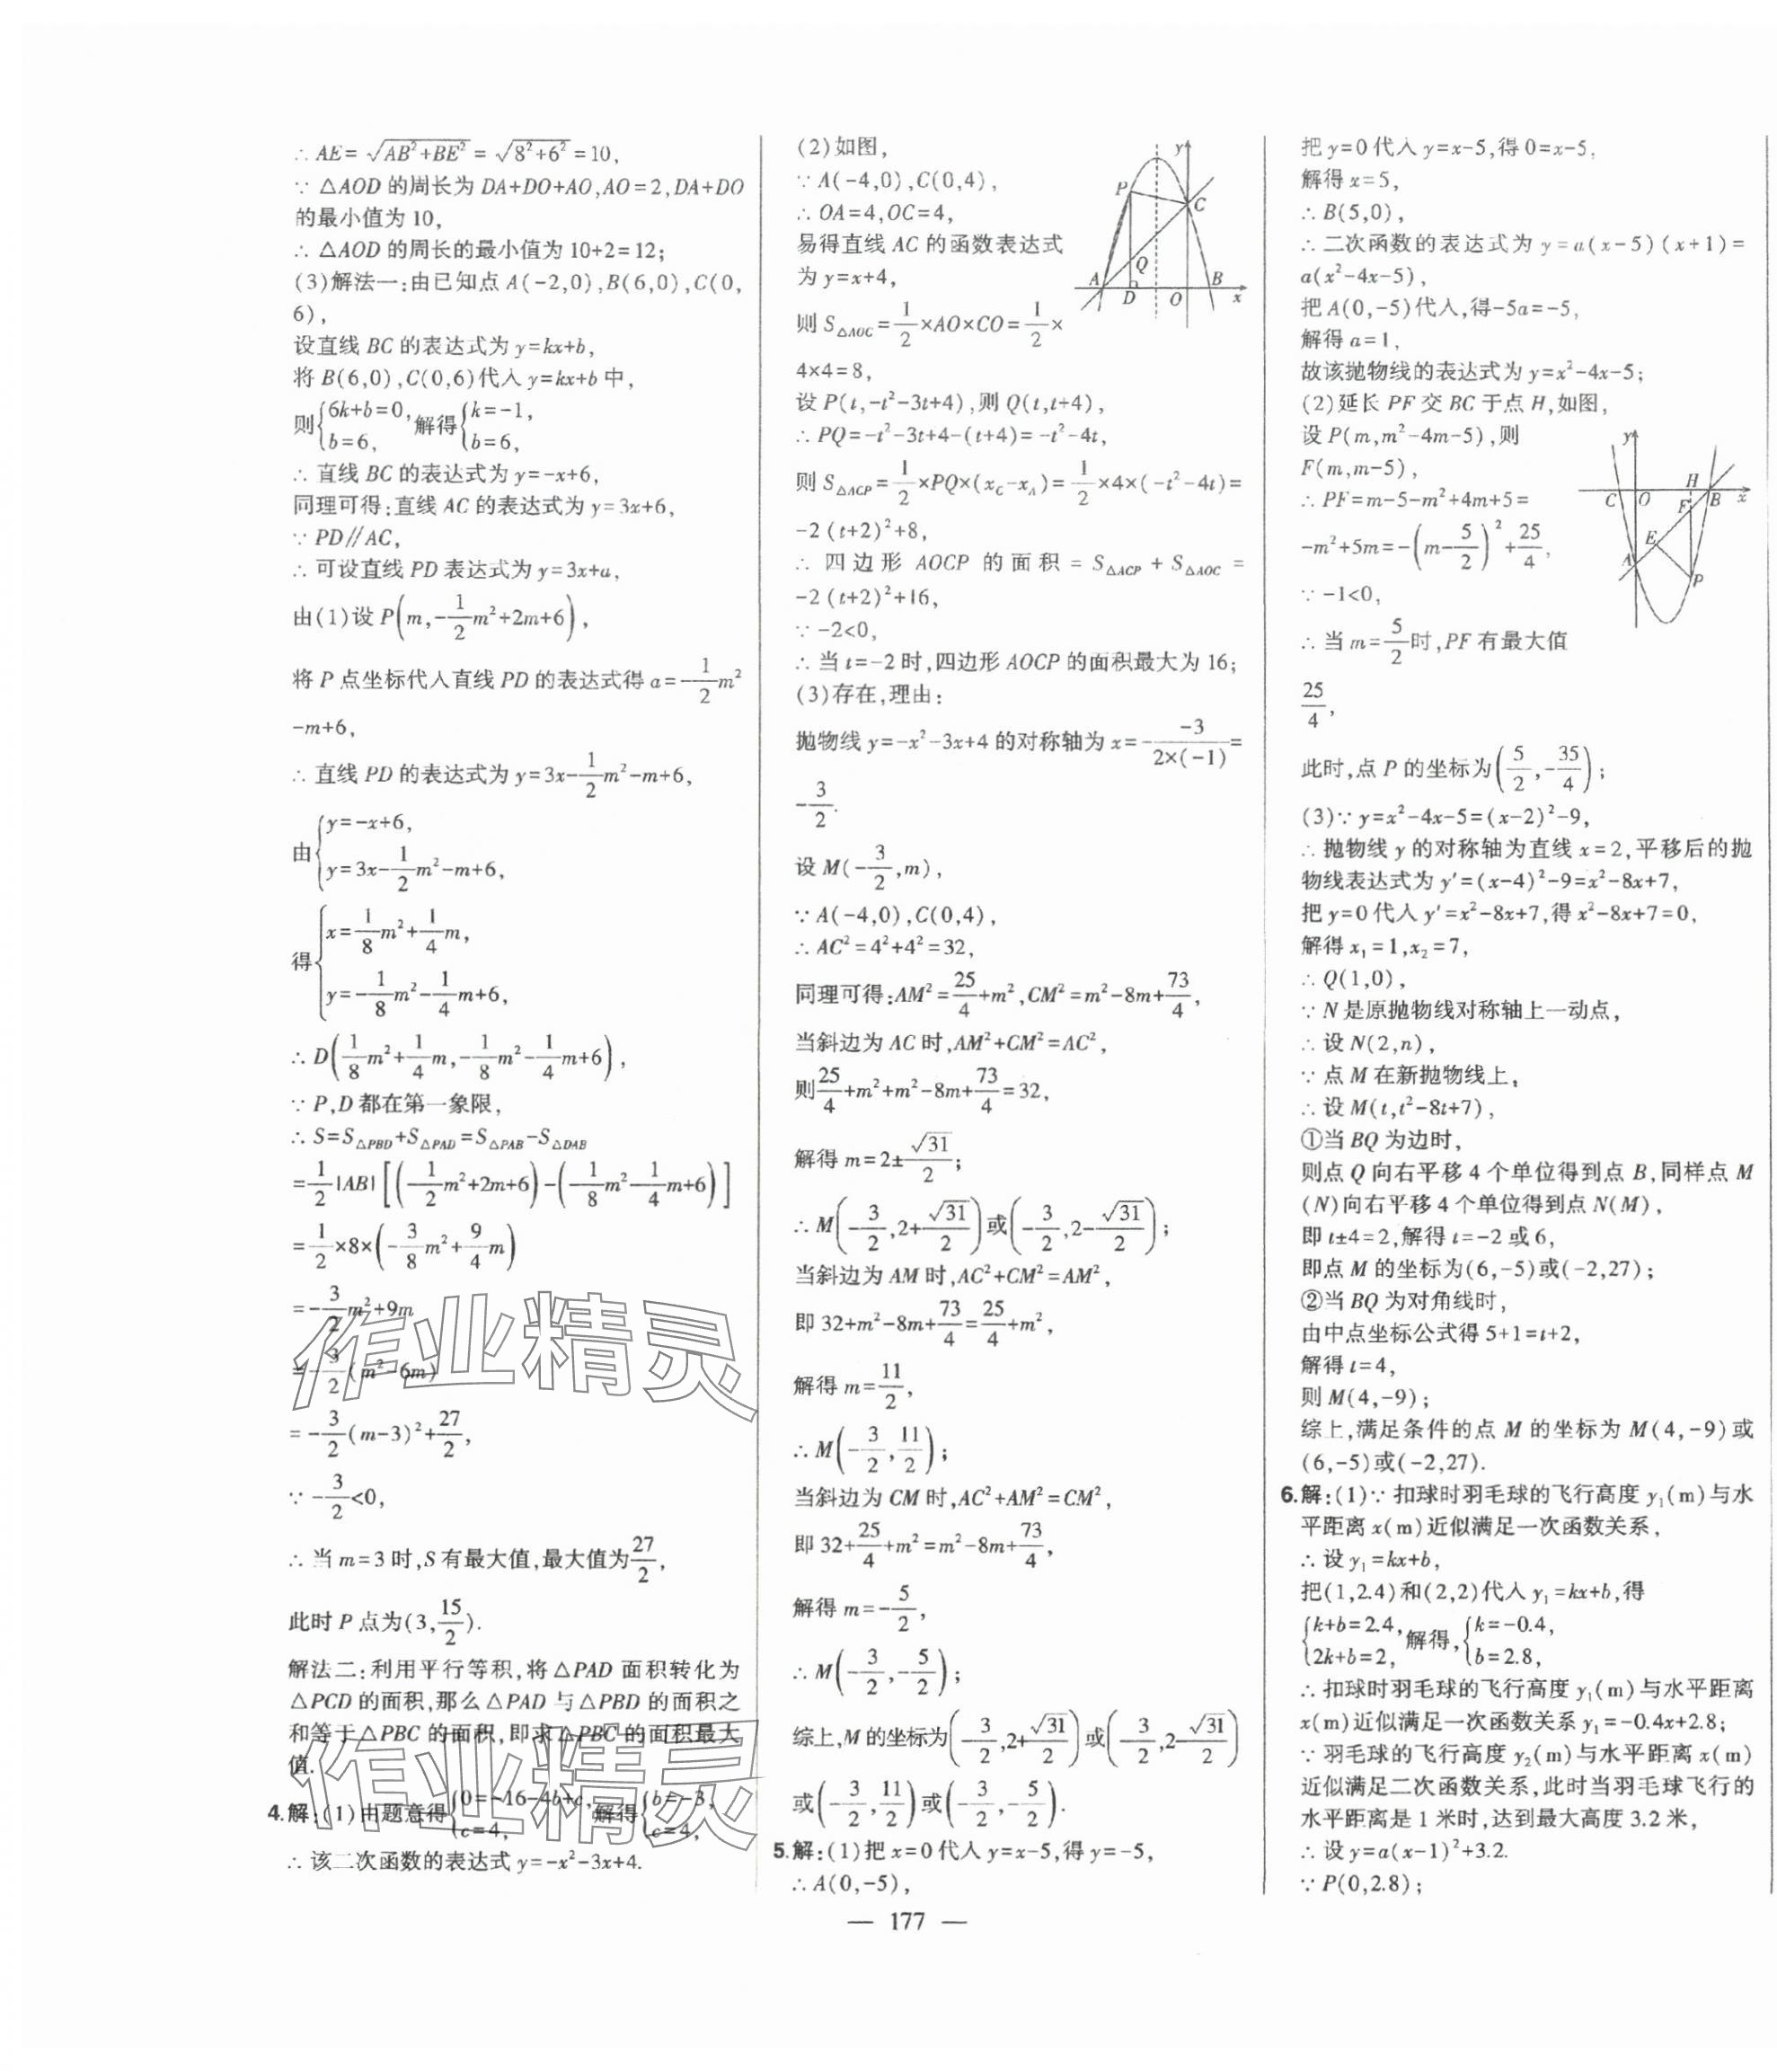 ∴ AE=√(AB²+BE²)=√(8²+6²)=10,
∵ △AOD 的周长为 DA+DO+AO,AO=2,DA+DO
的最小值为 10,
∴ △AOD 的周长的最小值为 10+2=12;
(3)解法一:由已知点 A(-2,0),B(6,0),C(0,
6),
设直线 BC 的表达式为 y=kx+b,
将 B(6,0),C(0,6)代入 y=kx+b 中,
则{6k+b=0, b=6, 解得{k=-1, b=6,
∴ 直线 BC 的表达式为 y=-x+6,
同理可得:直线 AC 的表达式为 y=3x+6,
∵ PD∥AC,
∴ 可设直线 PD 表达式为 y=3x+a,
由(1)设 P(m,-1/2m²+2m+6),
将 P 点坐标代入直线 PD 的表达式得 a=-1/2m²
-m+6,
∴ 直线 PD 的表达式为 y=3x-1/2m²-m+6,
由{y=-x+6,
y=3x-1/2m²-m+6,
得{x=1/8m²+1/4m,
y=-1/8m²-1/4m+6,
∴ D(1/8m²+1/4m,-1/8m²-1/4m+6),
∵ P,D 都在第一象限,
∴ S=S△PBD+S△PAD=S△PAB-S△DAB
=1/2|AB|[(-1/2m²+2m+6)-(-1/8m²-1/4m+6)]
=1/2×8×(-3/8m²+9/4m)
=-3/2m²+9m
=-3/2(m²-6m)
=-3/2(m-3)²+27/2,
∵ -3/2<0,
∴ 当 m=3 时,S 有最大值,最大值为27/2,
此时 P 点为(3,15/2).
解法二:利用平行等积,将△PAD 面积转化为
△PCD 的面积,那么△PAD 与△PBD 的面积之
和等于△PBC 的面积,即求△PBC 的面积最大
值.
4.解:(1)由题意得{0=-16-4b+c, c=4, 解得{b=-3, c=4,
∴ 该二次函数的表达式 y=-x²-3x+4.
(2)如图,
∵ A(-4,0),C(0,4),
∴ OA=4,OC=4,
易得直线 AC 的函数表达式
为 y=x+4,
y
P
C
Q
A
D
O
B
x
则 S△AOC=1/2×AO×CO=1/2×
4×4=8,
设 P(t,-t²-3t+4),则 Q(t,t+4),
∴ PQ=-t²-3t+4-(t+4)=-t²-4t,
则 S△ACP=1/2×PQ×(xC-xA)=1/2×4×(-t²-4t)=
-2(t+2)²+8,
∴ 四边形 AOCP 的面积=S△ACP+S△AOC=
-2(t+2)²+16,
∵ -2<0,
∴ 当 t=-2 时,四边形 AOCP 的面积最大为 16;
(3)存在,理由:
抛物线 y=-x²-3x+4 的对称轴为 x=-(-3)/(2×(-1))=
-3/2.
设 M(-3/2,m),
∵ A(-4,0),C(0,4),
∴ AC²=4²+4²=32,
同理可得:AM²=25/4+m²,CM²=m²-8m+73/4,
当斜边为 AC 时,AM²+CM²=AC²,
则25/4+m²+m²-8m+73/4=32,
解得 m=2±√31/2;
∴ M(-3/2,2+√31/2)或(-3/2,2-√31/2);
当斜边为 AM 时,AC²+CM²=AM²,
即 32+m²-8m+73/4=25/4+m²,
解得 m=11/2,
∴ M(-3/2,11/2);
当斜边为 CM 时,AC²+AM²=CM²,
即 32+25/4+m²=m²-8m+73/4,
解得 m=-5/2,
∴ M(-3/2,-5/2);
综上,M 的坐标为(-3/2,2+√31/2)或(-3/2,2-√31/2)
或(-3/2,11/2)或(-3/2,-5/2).
5.解:(1)把 x=0 代入 y=x-5,得 y=-5,
∴ A(0,-5),
把 y=0 代入 y=x-5,得 0=x-5,
解得 x=5,
∴ B(5,0),
∴ 二次函数的表达式为 y=a(x-5)(x+1)=
a(x²-4x-5),
把 A(0,-5)代入,得-5a=-5,
解得 a=1,
故该抛物线的表达式为 y=x²-4x-5;
(2)延长 PF 交 BC 于点 H,如图,
设 P(m,m²-4m-5),则
F(m,m-5),
∴ PF=m-5-m²+4m+5=
-m²+5m=-(m-5/2)²+25/4,
∵ -1<0,
∴ 当 m=5/2时,PF 有最大值
y
H
C
O
F
B
x
E
A
P
25/4,
此时,点 P 的坐标为(5/2,-35/4);
(3)∵ y=x²-4x-5=(x-2)²-9,
∴ 抛物线 y 的对称轴为直线 x=2,平移后的抛
物线表达式为 y′=(x-4)²-9=x²-8x+7,
把 y=0 代入 y′=x²-8x+7,得 x²-8x+7=0,
解得 x₁=1,x₂=7,
∴ Q(1,0),
∵ N 是原抛物线对称轴上一动点,
∴ 设 N(2,n),
∵ 点 M 在新抛物线上,
∴ 设 M(t,t²-8t+7),
①当 BQ 为边时,
则点 Q 向右平移 4 个单位得到点 B,同样点 M
(N)向右平移 4 个单位得到点 N(M),
即 t±4=2,解得 t=-2 或 6,
即点 M 的坐标为(6,-5)或(-2,27);
②当 BQ 为对角线时,
由中点坐标公式得 5+1=t+2,
解得 t=4,
则 M(4,-9);
综上,满足条件的点 M 的坐标为 M(4,-9)或
(6,-5)或(-2,27).
6.解:(1)∵ 扣球时羽毛球的飞行高度 y₁(m)与水
平距离 x(m)近似满足一次函数关系,
∴ 设 y₁=kx+b,
把(1,2.4)和(2,2)代入 y₁=kx+b,得
{k+b=2.4, 2k+b=2, 解得,{k=-0.4, b=2.8,
∴ 扣球时羽毛球的飞行高度 y₁(m)与水平距离
x(m)近似满足一次函数关系 y₁=-0.4x+2.8;
∵ 羽毛球的飞行高度 y₂(m)与水平距离 x(m)
近似满足二次函数关系,此时当羽毛球飞行的
水平距离是 1 米时,达到最大高度 3.2 米,
∴ 设 y=a(x-1)²+3.2.
∵ P(0,2.8);
— 177 —
作业精灵
作业精灵